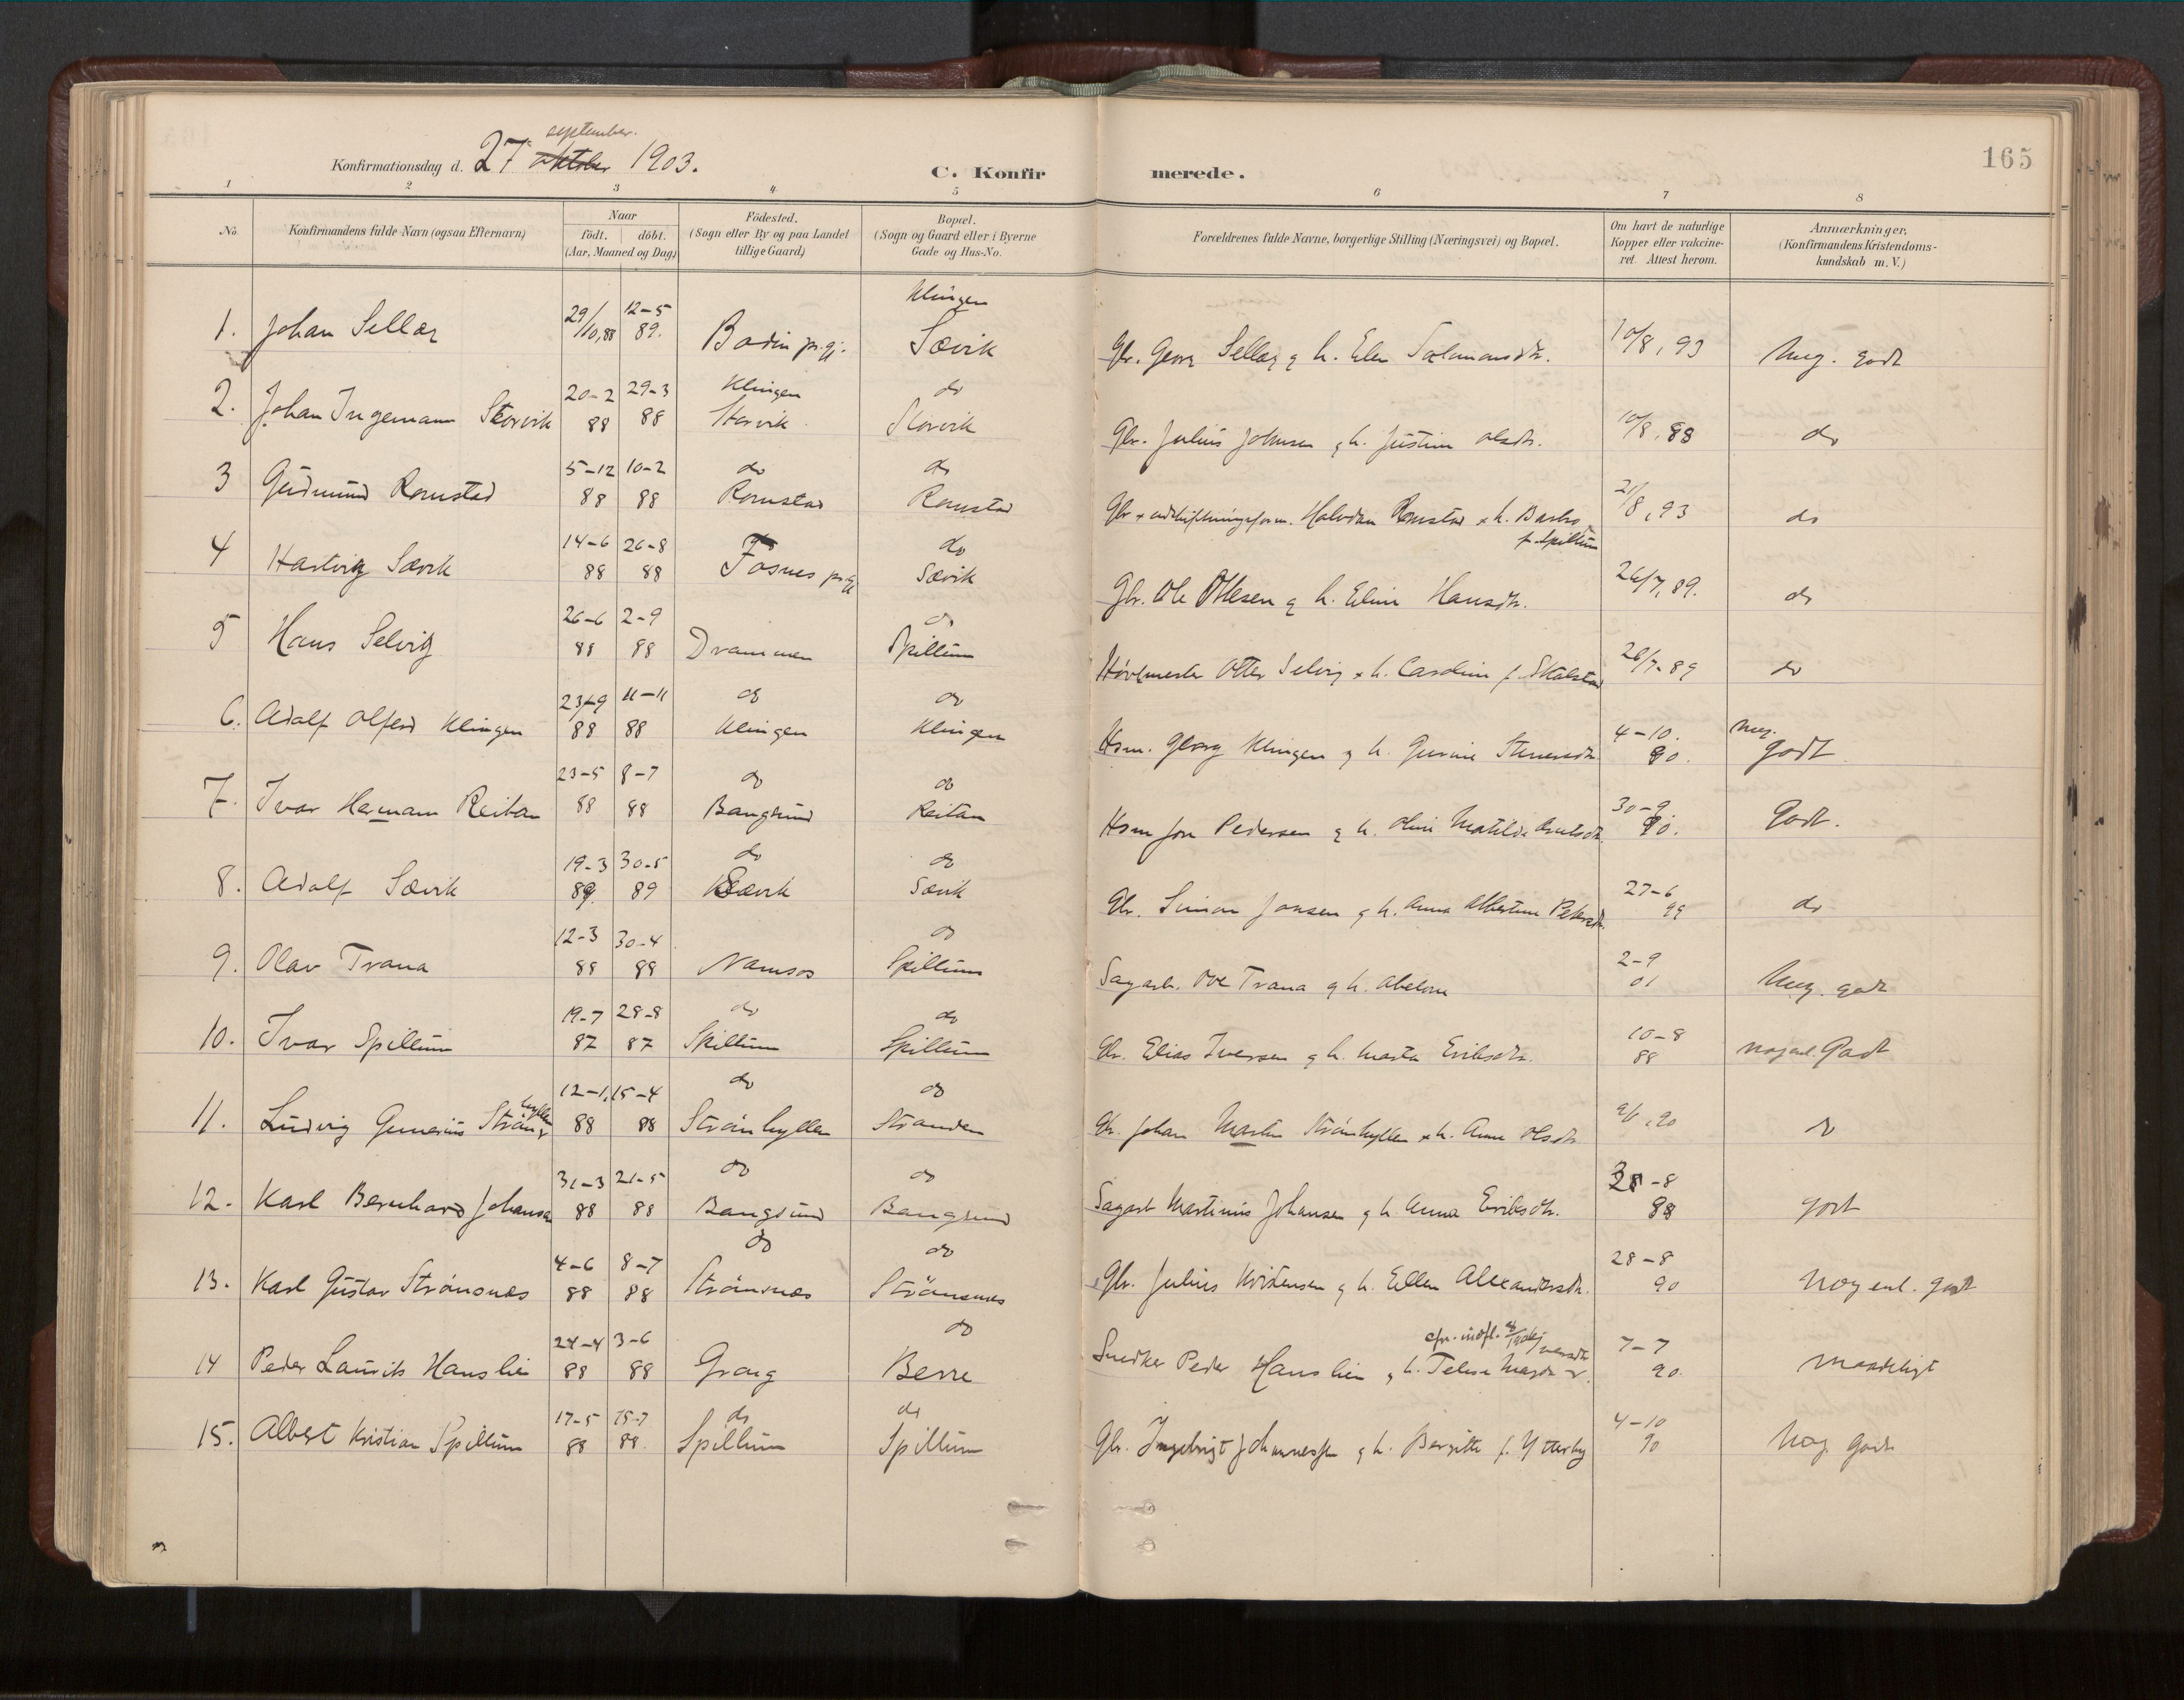 165
september.
Konfirmationsdag d. 27 oktober 1903.
C. Konfirmerede.
1 2 3 4 5 6 7 8
No
Konfirmandens fulde Navn (ogsaa Efternavn)
Naar
födt. döbt.
(Aar, Maaned og Dag)
Födested.
(Sogn eller By og paa Landet
tillige Gaard)
Bopæl.
(Sogn og Gaard eller i Byerne
Gade og Hus-No.
Forældrenes fulde Navne, borgerlige Stilling (Næringsvei) og Bopæl.
Om havt de naturlige
Kopper eller vakcine-
ret. Attest herom.
Anmærkninger.
(Konfirmandens Kristendoms-
kundskab m. V.)
Klingen
29/10,88 12-5
1. Johan Sellæg 89. Bodin pr.gj. Sævik Gbr. Georg Sellæg & h. Elen Salamonsdtr. 10/8, 93 Meg. godt
20-2 29-3 Klingen do
2. Johan Ingemann Storvik 88 88 Storvik Storvik Gbr. Julius Johnsen & h. Justine Olsdtr. 10/8, 88 do
5-12 10-2 do do
3 Gudmund Romstad 88 88 Romstad Romstad Gbr & udskiftningsform. Halvdan Romstad & h. Barbo 21/8, 93 do
f. Spillum
14-6 26-8 do
4 Hartvig Sævik 88 88 Fosnes prgj Sævik Gbr. Ole Ottesen & h. Eline Hansdtr. 26/7, 89. do
26-6 2-9 do
5 Hans Selvig 88 88 Drammen Spillum Hövlmester Otter Selvig & h. Caroline f. Skalstad 26/7-89 do
23-9 11-11 do do
6. Adolf Olferd Klingen 88 88 Klingen Klingen Hsm. Georg Klingen & h. Gurine Steinersdtr. 4-10. 90. meg. godt
23-5 8-7 do do
7. Ivar Hermann Reitan 88 88 Bangsund Reitan Hsm Jon Pedersen & h. Oline Matilde 30-9 90. Godt.
19-3 30-5 do do
8. Adolf Sævik 89. 89 Sævik Sævik Gbr. Simon Jonsen & h. Anna Albertine Petersdtr. 27-6 99 do
12-3 30-4 do
9. Olav Trana 88 88 Namsos Spillum Sagarb. Ove Trana & h. Abelone 2-9 01 Meg. godt
19-7 28-8 do do
10. Ivar Spillum 87 87 Spillum Spillum Gbr. Elias Iversen & h. Marta Eriksdtr. 10-8 88 nogenl. Godt
12-1. 15-4 do do
11. Ludvig Gunerius Strömhyllen 88 88 Strömhyllen Stranden Gbr. Johan Martin Strömhyllen & h. Anne Olsdtr. 9/1, 90 do
31-3 21-5 do do
12. Karl Bernhard Johansen 88 88 Bangsund Bangsund Sagarb Martinus Johansen & h. Anna Eriksdtr. 28-8 88 godt
4-6 8-7 do do
13. Karl Gustav Strömsnes 88 88 Strömsnes Strömsnes Gbr. Julius Kristensen & h. Ellen Alexandersdtr. 28-8 90 Nogenl. godt
24-4 3-6 do
14 Peder Laurits Hanslien 88 88 Grong Berre Snedker Peder Hanslien & h. Telise 7-7 90. maadeligt
17-5 15-7 do do
15. Albert Kristian Spillum 88 88. Spillum Spillum Gbr. Ingebrigt Johannessen & h. Bergitte f. Ytterby 4-10 90 Nog. Godt